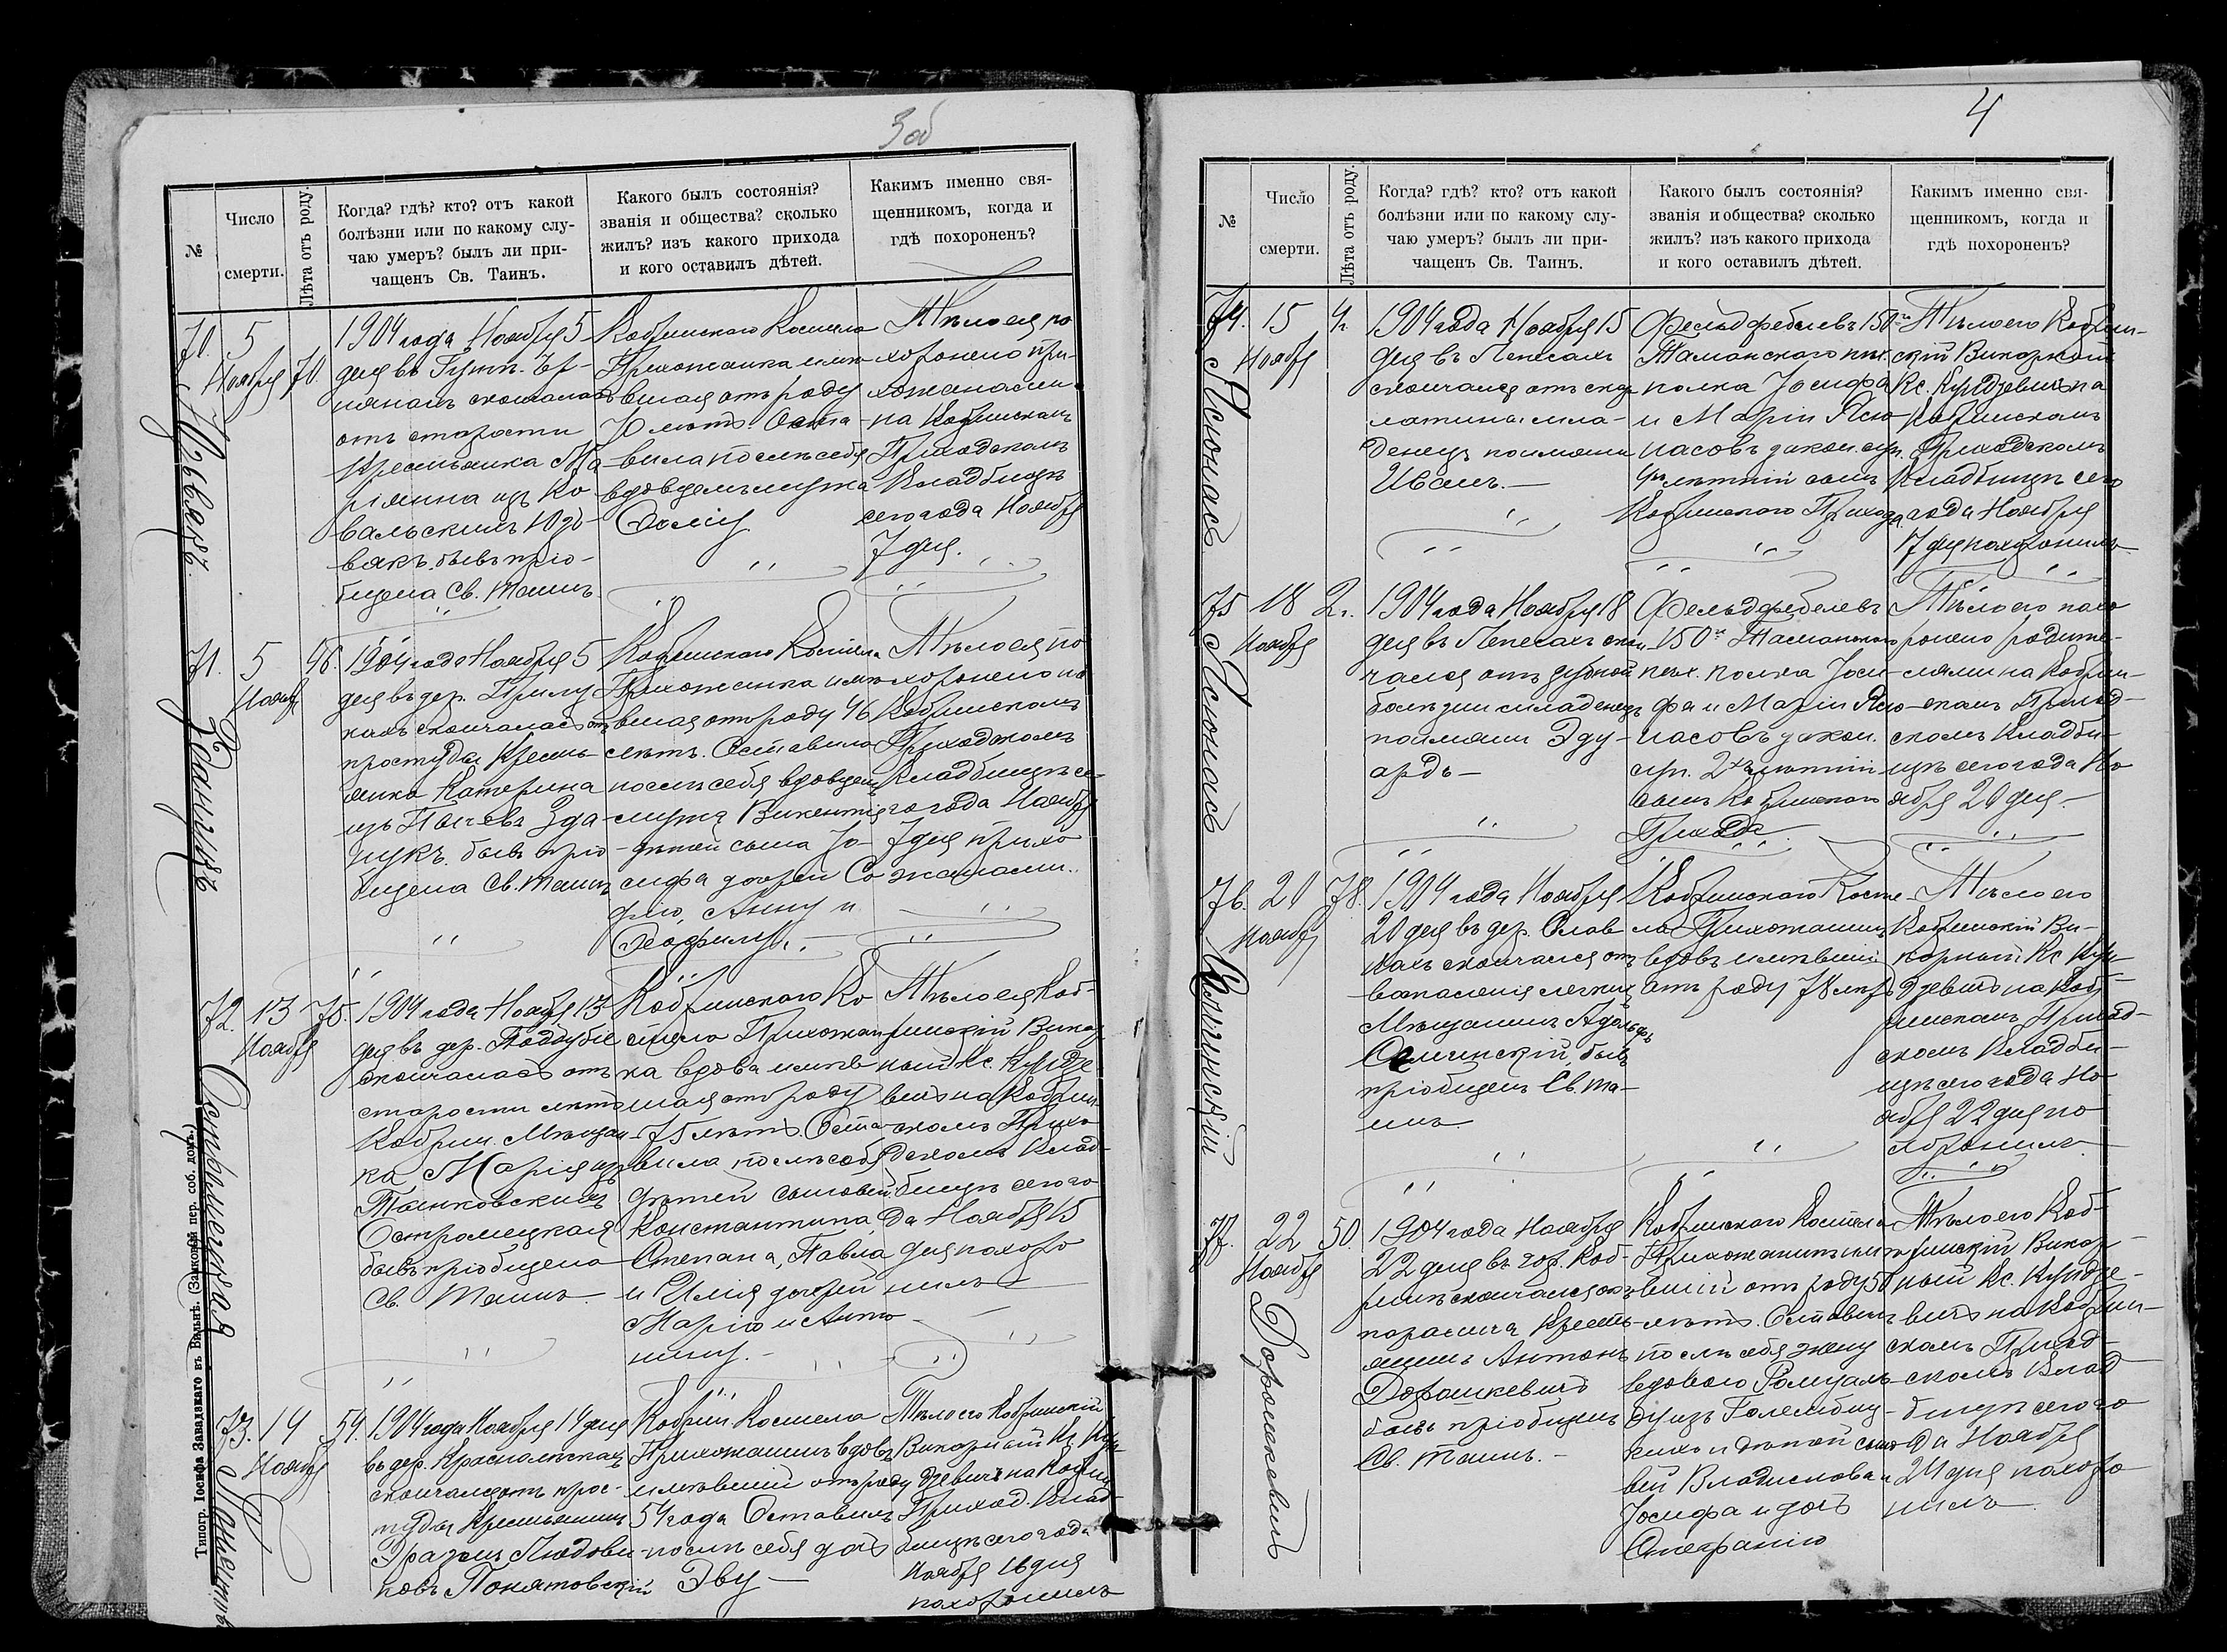 3об
№
Число
смерти.
Лѣта отъ роду.
Когда? гдѣ? кто? отъ какой
болѣзни или по какому слу-
чаю умеръ? былъ ли при-
чащенъ Св. Таинъ.
Какого былъ состоянія?
званія и общества? сколько
жилъ? изъ какого прихода
и кого оставилъ дѣтей.
Какимъ именно свя-
щенникомъ, когда и
гдѣ похороненъ?
70.
5
Ноября
70
1904 года Ноября 5
дня въ
скончалась
отъ старости
Крестьянка Ма-
ріянна изъ Ко
вальскихъ Юзь-
вякъ. бывъ пріо-
бщена Св. Таинъ
Кобринскаго Костела
Прихожанка имѣ-
вшая отъ роду
70 лѣтъ. Оста-
вила послѣ себя
вдовцемъ мужа
Ѳому
Тѣло ея по
хоронено при-
хожанами
на Кобринскомъ
Приходскомъ
Кладбищѣ
сего года Ноября
7 дня.
71.
5
Ноября
46.
1904 года Ноября 5
дня въ дер. Прилу
кахъ скончалась отъ
простуды Кресть-
янка Катерина
изъ Зда-
нукъ. бывъ пріо-
бщена Св. Таинъ
Кобринскаго Костела
Прихожанка имѣ
вшая отъ роду 46
лѣтъ. Оставила
послѣ себя вдовцемъ
мужа Викентія
дѣтей сына Іо-
сифа дочерей Со
фію, Анну и
Ѳеофилу
Тѣло ея по
хоронено на
Кобринскомъ
Приходскомъ
Кладбищѣ се-
го года Ноября
7 дня прихо
жанами.
72.
13
Ноября
75.
1904 года Ноября 13
дня въ дер. Поддубіе
скончалась отъ
старости лѣтъ
Кобрин. Мѣщан-
ка Марія изъ
Паньковскихъ
Остромецкая
бывъ пріобщена
Св. Таинъ.
Кобринскаго Ко
стела Прихожан
ка вдова имѣв-
шая отъ роду
75 лѣтъ. Оста-
вила послѣ себя
дѣтей сыновей:
Константина
Степана, Павла
и Юлія дочерей
Марію и Анто-
нину.
Тѣло ея Коб-
ринскій Викар
ный Кс. Кундзе
вичъ на Кобрин-
скомъ Прихо
дскомъ Клад-
бищѣ сего го
да Ноября 15
дня похоро
нилъ
73.
14
Ноября
54.
1904 года Ноября 14 дня
въ дер.
скончался отъ прос-
туды Крестьянинъ
Эразмъ Людови-
ковъ Понятовскій
Кобрин. Костела
Прихожанинъ вдовъ
имѣвшій отъ роду
54 года Оставилъ
послѣ себя дочь
Эву
Тѣло его Кобринскій
Викарный Кс. Кун
дзевичъ на Кобрин
Приход. Клад-
бищѣ сего года
Ноября 16 дня
похоронилъ
Юзьвякъ.
Зданукъ
Остромецкая
Типогр. Іосифа Завадзкаго въ Вильнѣ. (Замковый пер. соб. домъ.)
4
№
Число
смерти.
Лѣта отъ роду.
Когда? гдѣ? кто? отъ какой
болѣзни или по какому слу-
чаю умеръ? былъ ли при-
чащенъ Св. Таинъ.
Какого былъ состоянія?
званія и общества? сколько
жилъ? изъ какого прихода
и кого оставилъ дѣтей.
Какимъ именно свя-
щенникомъ, когда и
гдѣ похороненъ?
74.
15
Ноября
4
1904 года Ноября 15
дня въ Пепесахъ
скончался отъ скар
латины мла-
денецъ поимени
Иванъ.
Фельдфебелевъ 150го
Таманскаго пѣх.
полка Іосифа
и Маріи Ясю-
насовъ закон. суп.
4хъ лѣтній сынъ
Кобринскаго Прихода.
Тѣло его Кобрин-
скій Викарный
Кс. Кундзевичъ на
Кобринскомъ
Приходскомъ
Кладбищѣ сего
года Ноября
17 дня похоронилъ
75
18
Ноября
2.
1904 года Ноября 18
дня въ Пепесахъ скон
чался отъ зубной
болѣзни младенецъ
поимени Эду-
ардъ
Фельдфебелевъ
150го Таманскаго
пѣх. полка Іоси-
фа и Маріи Ясю-
насовъ закон.
суп. 2хъ лѣтній
сынъ Кобринскаго
Прихода.
Тѣло его похо
ронено родите-
лями на Кобрин-
скомъ Приход-
скомъ Кладби-
щѣ сего года Но
ября 20 дня.
76.
20
Ноября
78.
1904 года Ноября
20 дня въ дер. Слав
кахъ скончался отъ
воспаленія легкихъ
Мѣщанинъ Адольфъ
Олигинскій, бывъ
пріобщенъ Св. Та-
инъ
Кобринскаго Косте-
ла Прихожанинъ
вдовъ имѣвшій
отъ роду 78 лѣтъ
Тѣло его
Кобринскій Ви-
карный Кс Кун-
дзевичъ на Коб-
ринскомъ Приход-
скомъ Кладби-
щѣ сего года Но-
ября 22 дня по
хоронилъ
77.
22
Ноября
50.
1904 года Ноября
22 дня въ гор. Коб-
ринѣ скончался отъ
паралича Кресть-
янинъ Антонъ
Дорошкевичъ
бывъ пріобщенъ
Св. Таинъ.
Кобринскаго Костела
Прихожанинъ имѣ
вшій отъ роду 50
лѣтъ. Оставилъ
послѣ себя жену
вдовою Ромуаль-
ду изъ Големби-
кихъ и дѣтей сыно
вей Владислава и
Іосифа и дочь
Стефанію
Тѣло его Коб-
ринскій Викар-
ный Кс. Кундзе-
вичъ на Кобрин-
скомъ Приход-
скомъ Клад
бищѣ сего го
да Ноября
24 дня похоро
нилъ
Ясюнасъ
Ясюнасъ
Дорошкевичъ